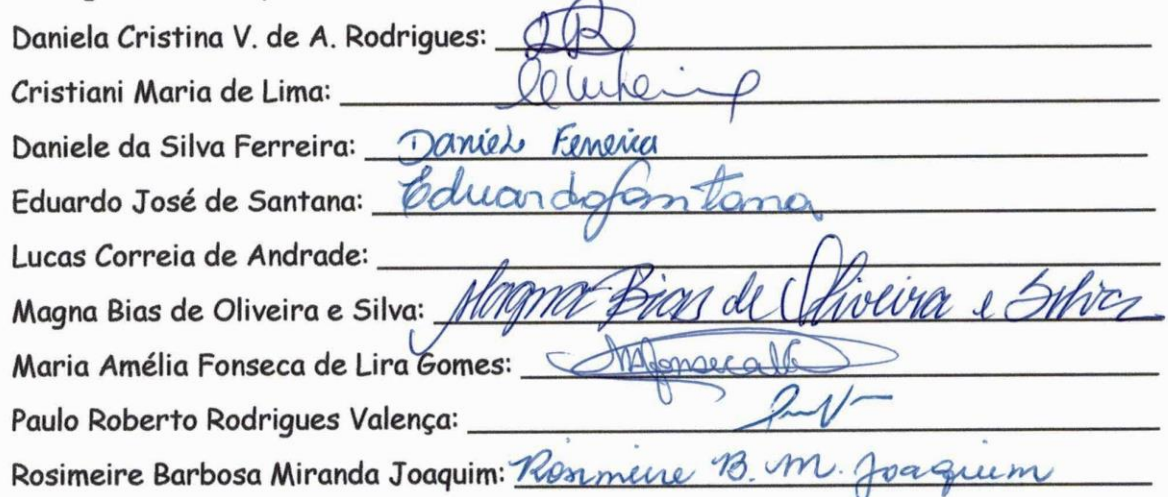 Daniela Cristina V. de A. Rodrigues:
Cristiani Maria de Lima:
Daniele da Silva Ferreira: Daniele Ferreira
Eduardo José de Santana: Eduardo Santana
Lucas Correia de Andrade:
Magna Bias de Oliveira e Silva: Magna Bias de Oliveira e Silva
Maria Amélia Fonseca de Lira Gomes:
Paulo Roberto Rodrigues Valença:
Rosimeire Barbosa Miranda Joaquim: Rosimeire B. M. Joaquim